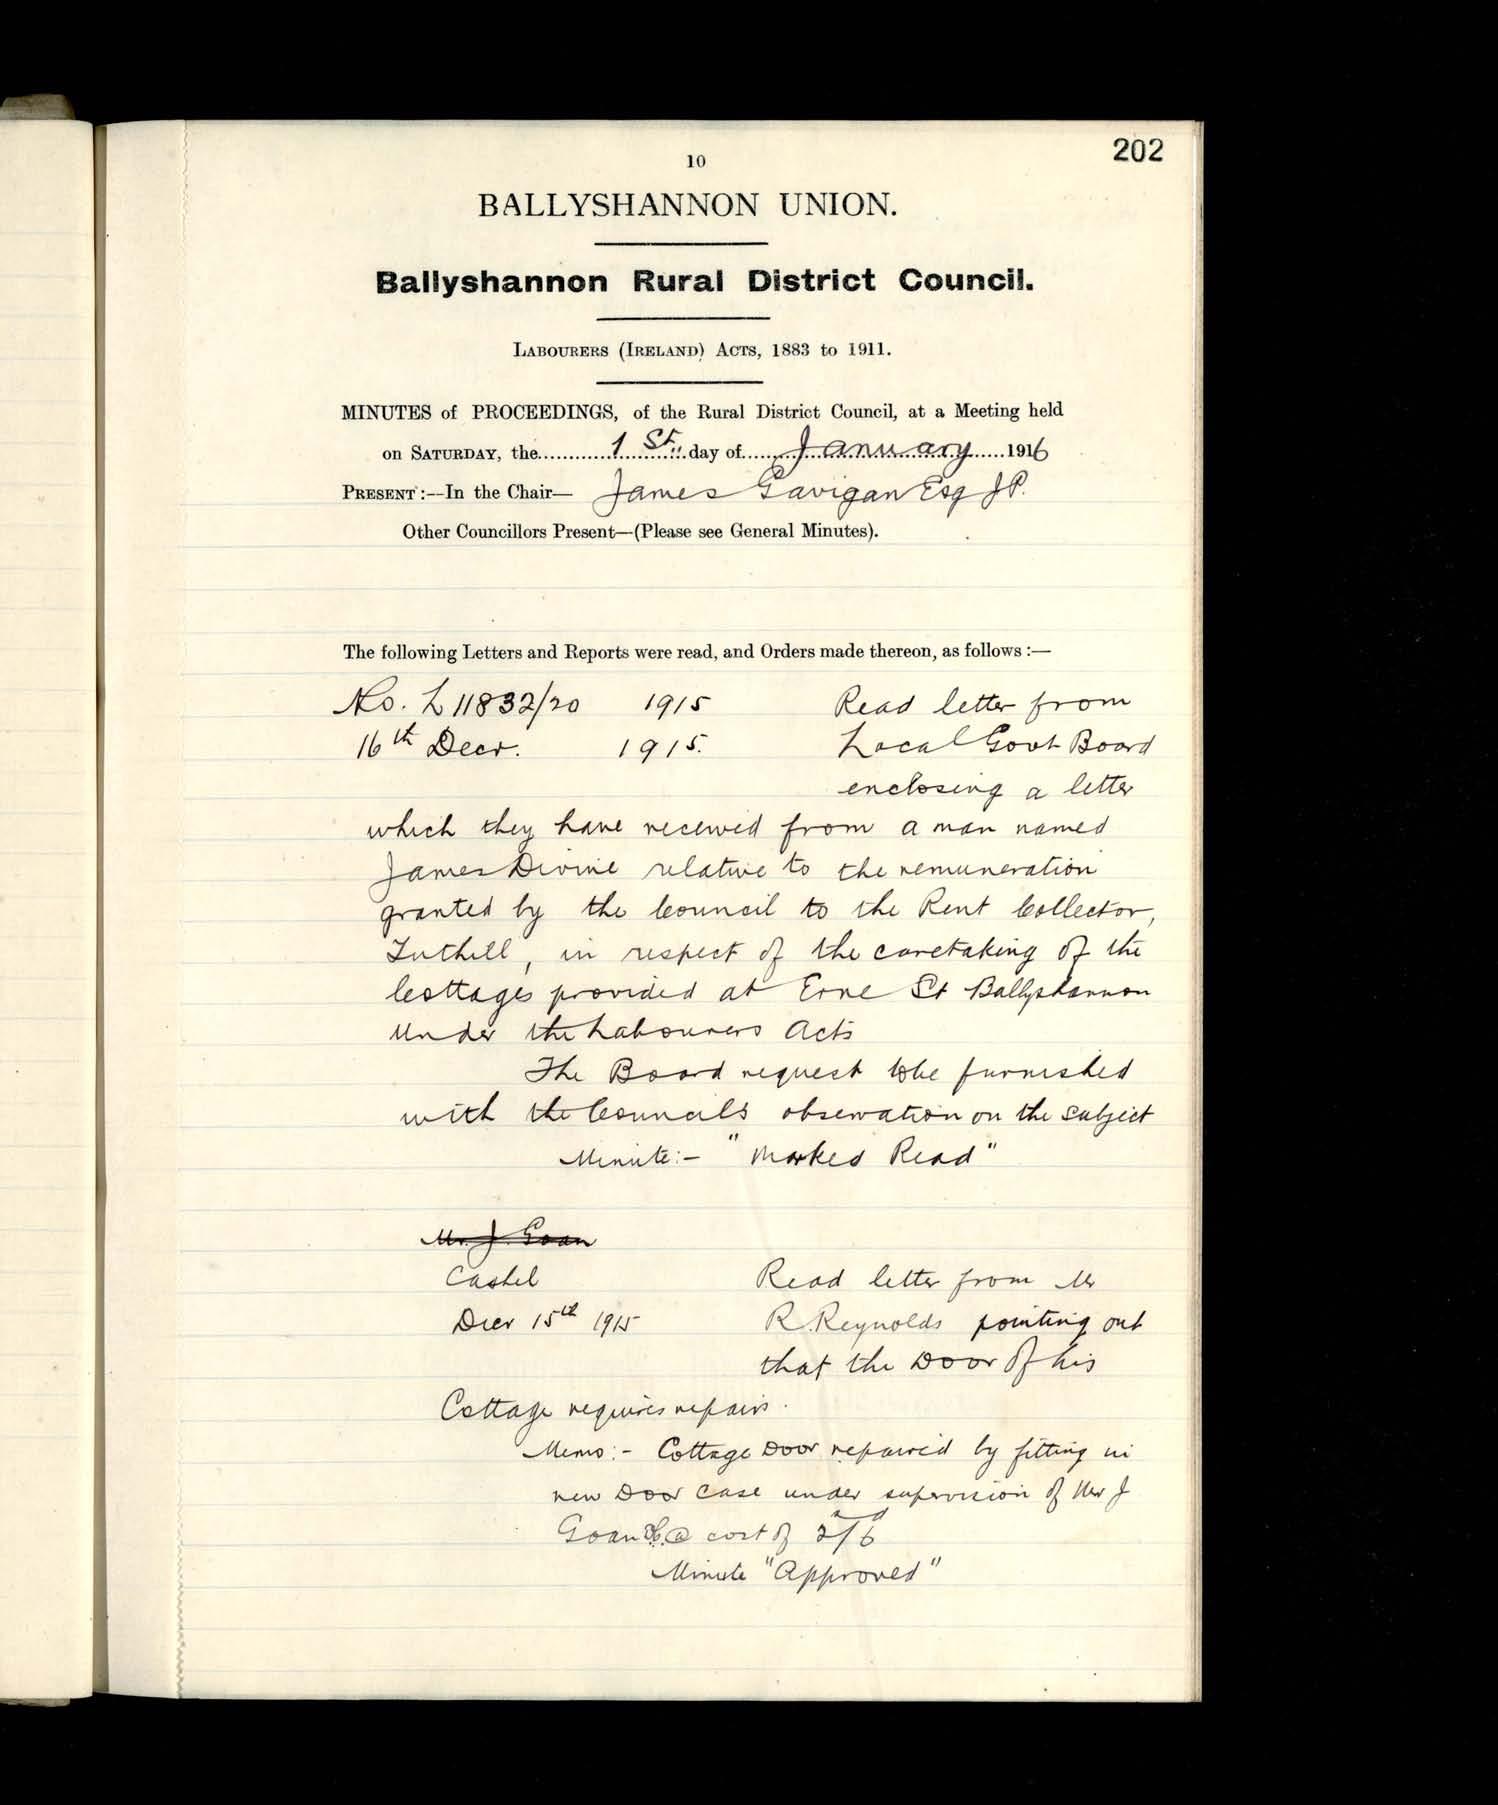 202
10
BALLYSHANNON UNION.
Ballyshannon Rural District Council.
LABOURERS (IRELAND) ACTS, 1883 to 1911.
MINUTES of PROCEEDINGS, of the Rural District Council, at a Meeting held
on SATURDAY, the 1st day of January 1916
PRESENT:--In the Chair— James Gavigan Esq J.P.
Other Councillors Present—(Please see General Minutes).
The following Letters and Reports were read, and Orders made thereon, as follows :—
No. L 11832/20 1915 Read letter from
16th Decr. 1915. Local Govt Board
enclosing a letter
which they have received from a man named
James Divine relative to the remuneration
granted by the Council to the Rent Collector,
Tuthill, in respect of the caretaking of the
Cottages provided at Erne St Ballyshannon
under the Labourers Acts
The Board request to be furnished
with the Councils observation on the subject
Minute:- "Marked Read"
Mr. J. Goan
Cashel Read letter from Mr
Decr 15th 1915 R. Reynolds pointing out
that the Door of his
Cottage requires repairs.
Memo:- Cottage Door repaired by fitting in
new Door Case under supervision of Mr J
Goan @ cost of 2/6
Minute "Approved"